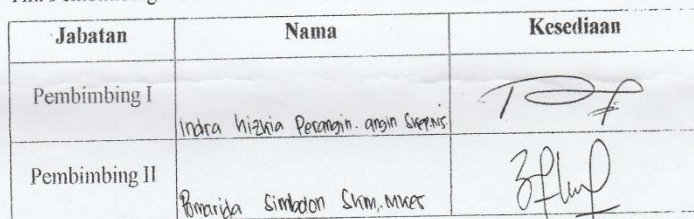 Jabatan Nama Kesediaan
Pembimbing I Indra hizkia Perangin-angin Skep.NS
Pembimbing II Simbolon Skm, Mkes